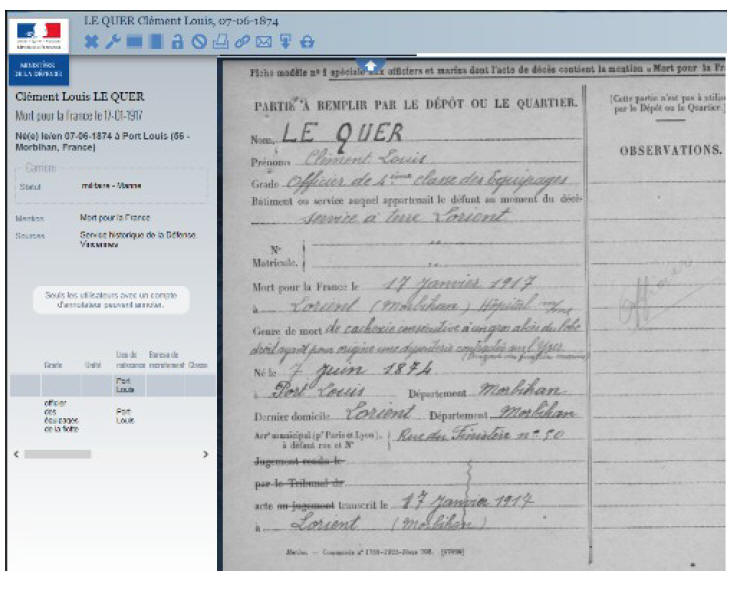 LE QUER Clément Louis, 07-06-1874
MINISTÈRE
DE LA DÉFENSE
Clément Louis LE QUER
Mort pour la france le 17-01-1917
Né(e) le/en 07-06-1874 à Port Louis (56 -
Morbihan, France)
Carrière
Statut militaire - Marine
Mention Mort pour la France
Sources Service historique de la Défense,
Vincennes
Seuls les utilisateurs avec un compte
d'annotateur peuvent annoter.
Grade Unité Lieu de naissance Bureau de recrutement Classe
Port
Louis
officier
des
équipages
de la flotte
Port
Louis
Fiche modèle n° 1 spéciale aux officiers et marins dont l'acte de décès contient la mention « Mort pour la Fr
PARTIE À REMPLIR PAR LE DÉPÔT OU LE QUARTIER.
(Cette partie n'est pas à utilise
par le Dépôt ou le Quartier.)
OBSERVATIONS.
Nom, LE QUER
Prénoms Clément Louis
Grade Officier de 4ème classe des Equipages
Bâtiment ou service auquel appartenait le défunt au moment du décè
service à terre Lorient
N°
Matricule.
Mort pour la France le 17 Janvier 1917
à Lorient (Morbihan) Hôpital
Officier
Genre de mort de cachexie consécutive à un gros abcès du lobe
droit ayant pour origine une dysenterie contractée sur l'Yser
Né le 7 Juin 1874
à Port Louis Département Morbihan
Dernier domicile Lorient Département Morbihan
Arrt municipal (pr Paris et Lyon),
à défaut rue et N°
Rue du Finistère n° 50
Jugement rendu le
par le Tribunal de
acte ou jugement transcrit le 17 Janvier 1917
à Lorient (Morbihan)